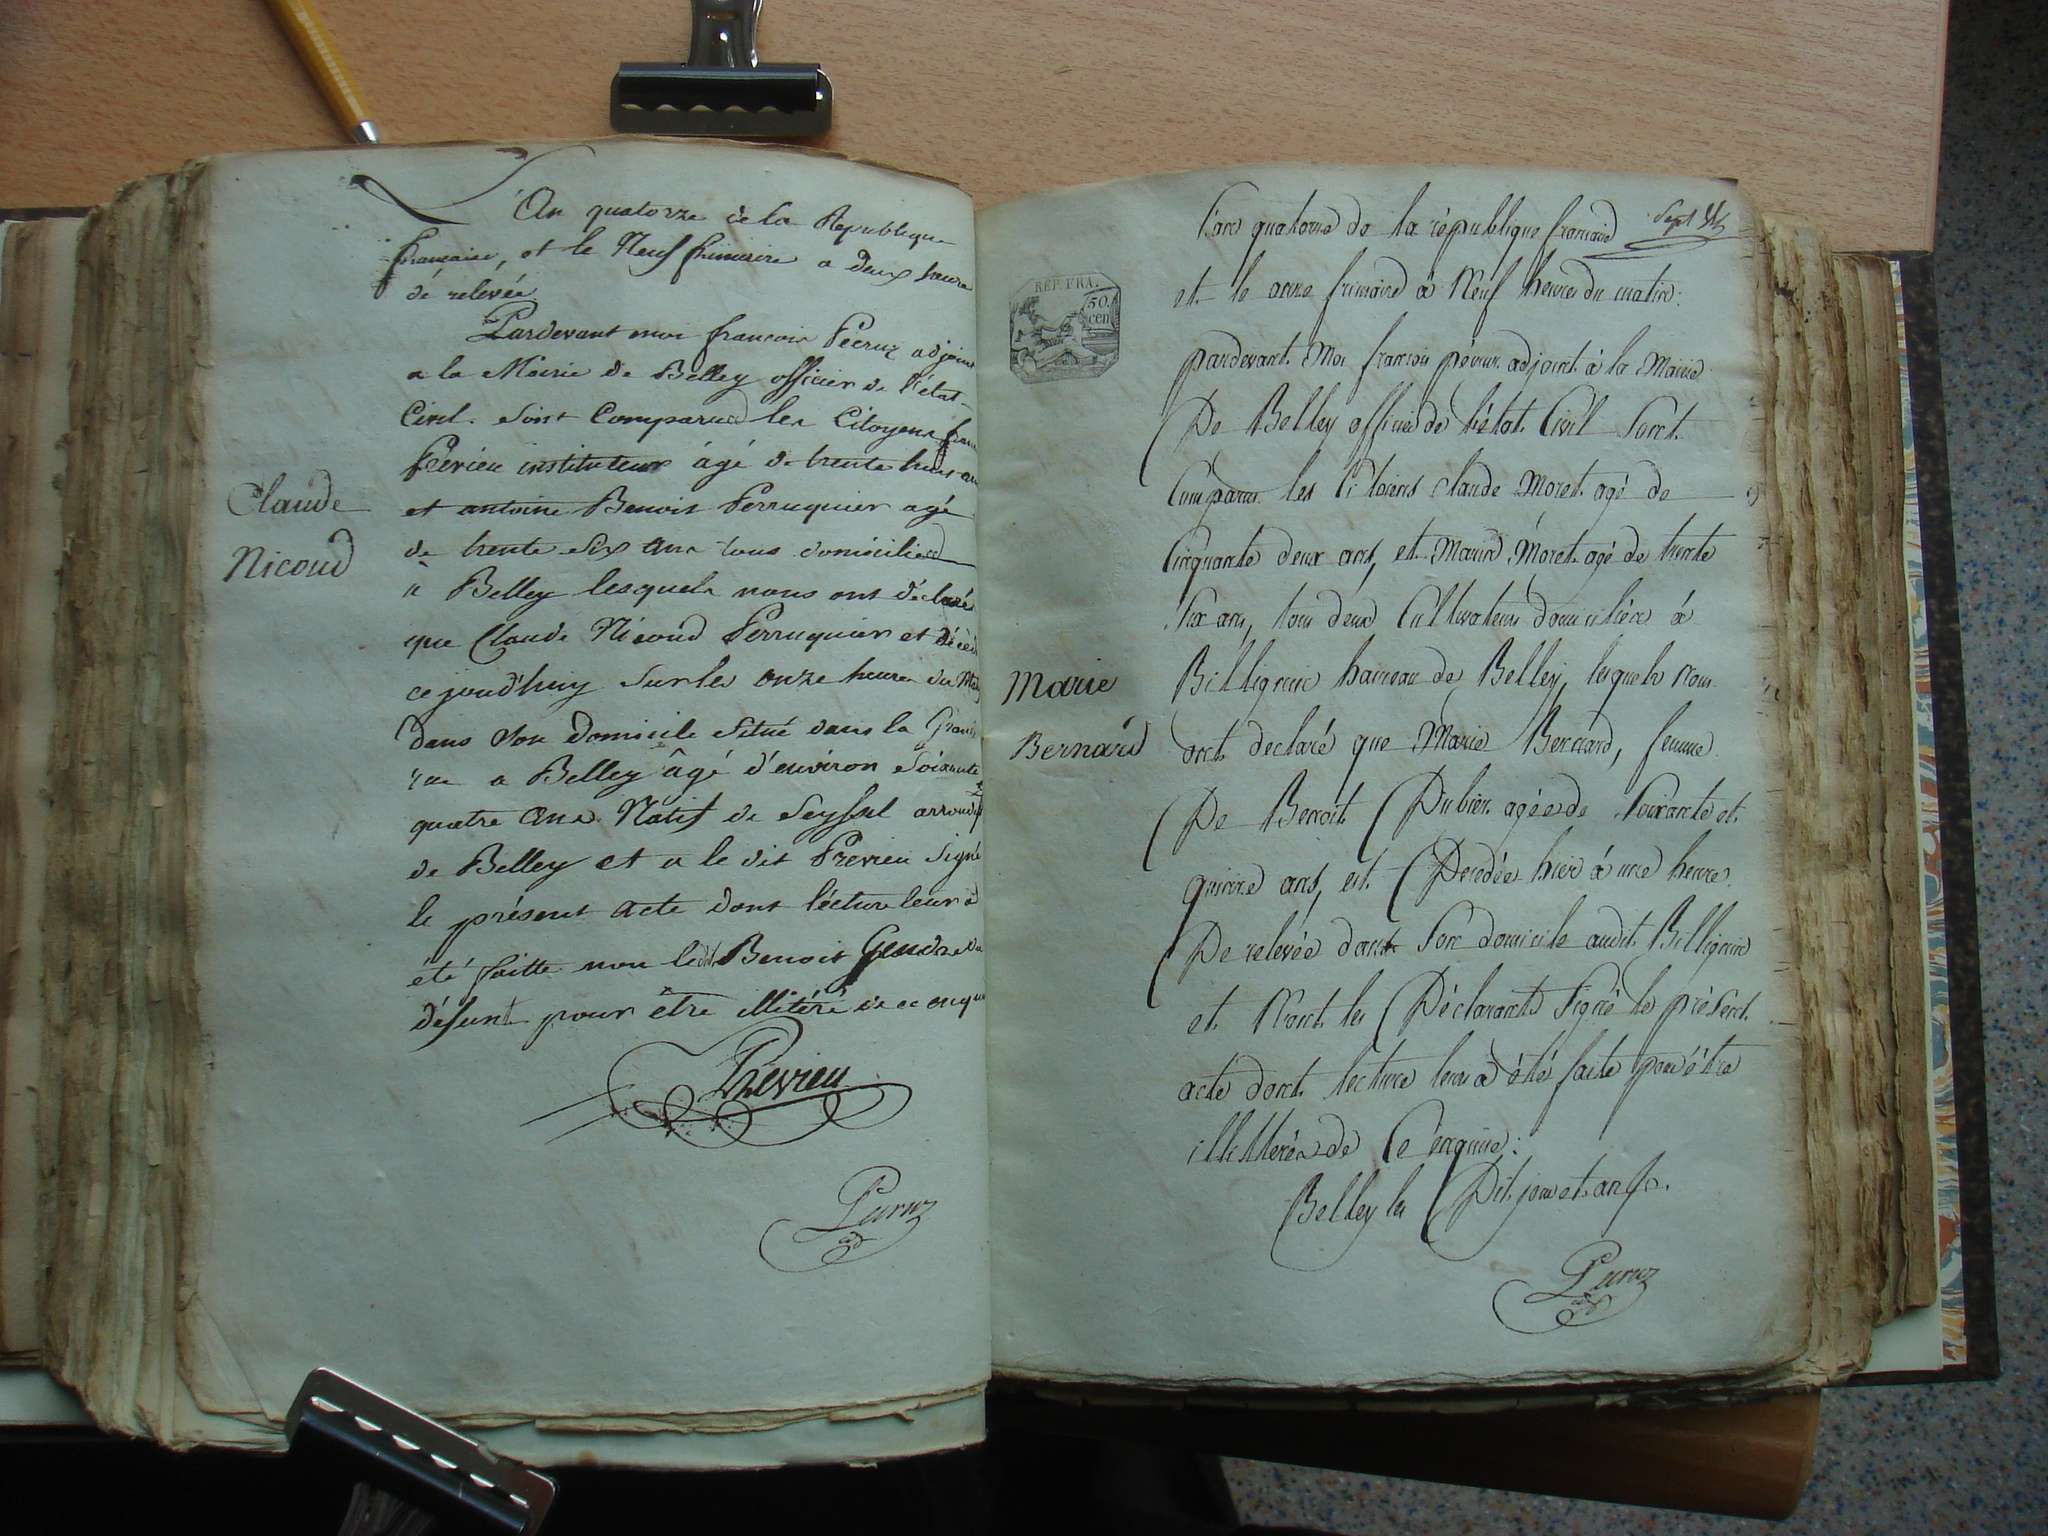 An quatorze de la Republique
française, et le Neuf frimaire a deux heure
de relevée
Pardevant moi françois Pécruz adjoint
a la Mairie de Belley officier de l'état-
Civil. sont Comparus les Citoyens
Prévieu instituteur âgé de trente huit an
et antoine Benoit Perruquier agé
de trente Six ans tous domiciliés
a Belley lesquels nous ont déclaré
que Claude Nicoud Perruquier et décédé
ce jourd'huy Sur les onze heures du Mat
dans son Domicile Situé dans la Grand
rue a Belley âgé d'environ Soixante
quatre ans Natif de Seyssel arrondis
de Belley et a le dit Prévieu Signé
le présent acte dont lécture leur a
été faitte non ledit Benoit Gendre du
défunt pour être illitéré de ce enquis
Claude
Nicoud
Prévieu
Pécruz
adj
Sept
REP. FRA.
50.
cen
L'an quatorze de la république francaise
et le onze frimaire à Neuf heures du matin:
pardevant Moi françois pécruz adjoint à la Mairie
De Belley officier de l'état Civil Sont
Comparus les Citoiens Claude Moret agé de
Cinquante deux ans, et Marin Moret agé de trente
Six ans, tous deux Cultivateurs domiciliés à
Billignin hameau de Belley, lesquels nous
ont declaré que Marie Bernard, femme
De Benoit Dubien agée de Soixante et
quinze ans, est Décedée hier à une heure
De relevée dans Son domicile audit Billignin
et N'ont les Déclarants Signé le présent
acte dont lecture leur a été faite pour être
illittérés de Ce Enquis:
Belley les Dit jour et an
Marie
Bernard
Pécruz
adj